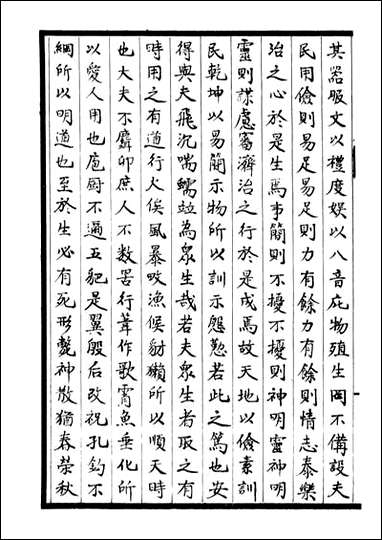 其器服文以禮度娱以八音庇物殖生罔不備設夫
民用儉則易足易足則力有餘力有餘則情志泰樂
治之心於是生焉事簡則不擾不擾則神明靈神明
靈則謀慮審濟治之行於是成焉故天地以儉素訓
民乾坤以易簡示物所以訓示慇懃若此之篤也安
得與夫飛沉喘蠕竝為衆生哉若夫衆生者取之有
時用之有道行火俟風暴畋漁候豺獺所以順天時
也大夫不麛卵庶人不數罟行葦作歌霄魚垂化所
以愛人用也庖厨不邇五豝是翼殷后改祝孔釣不
綱所以明道也至於生必有死形斃神散猶春榮秋